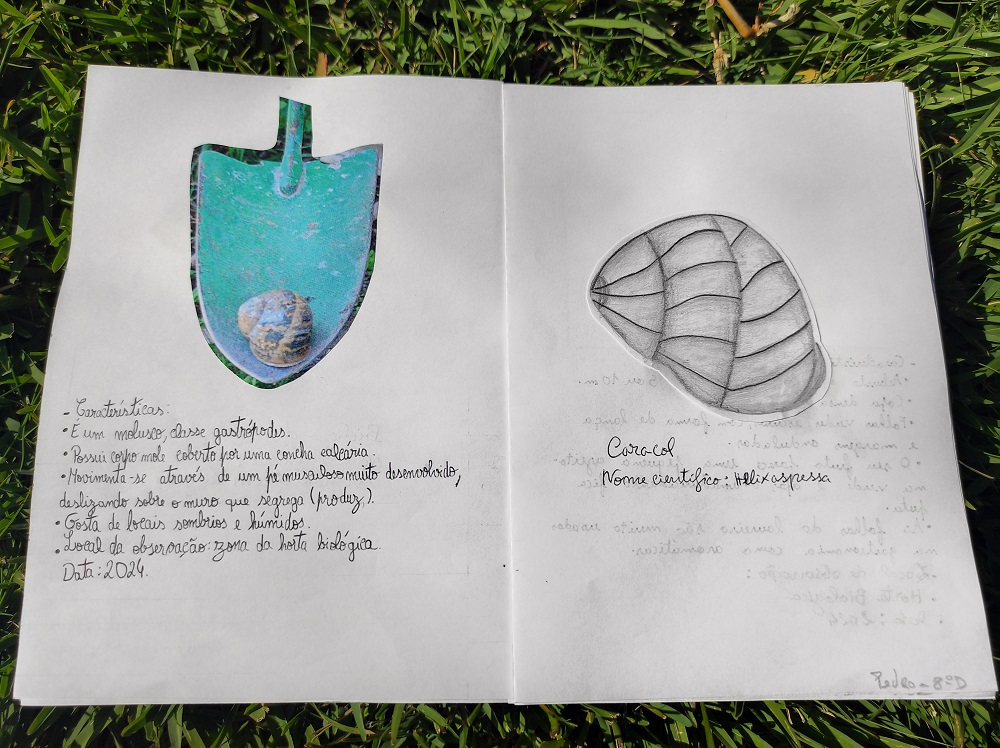 - Características:
• É um molusco, classe gastrópodes.
• Possui corpo mole coberto por uma concha calcária.
• Movimenta-se através de um pé musculoso muito desenvolvido,
deslizando sobre o muro que segrega (produz).
• Gosta de locais sombrios e húmidos.
• Local da observação: zona da horta biológica.
Data: 2024.
Caracol
Nome científico: Helix aspessa
Pedro - 8ºD